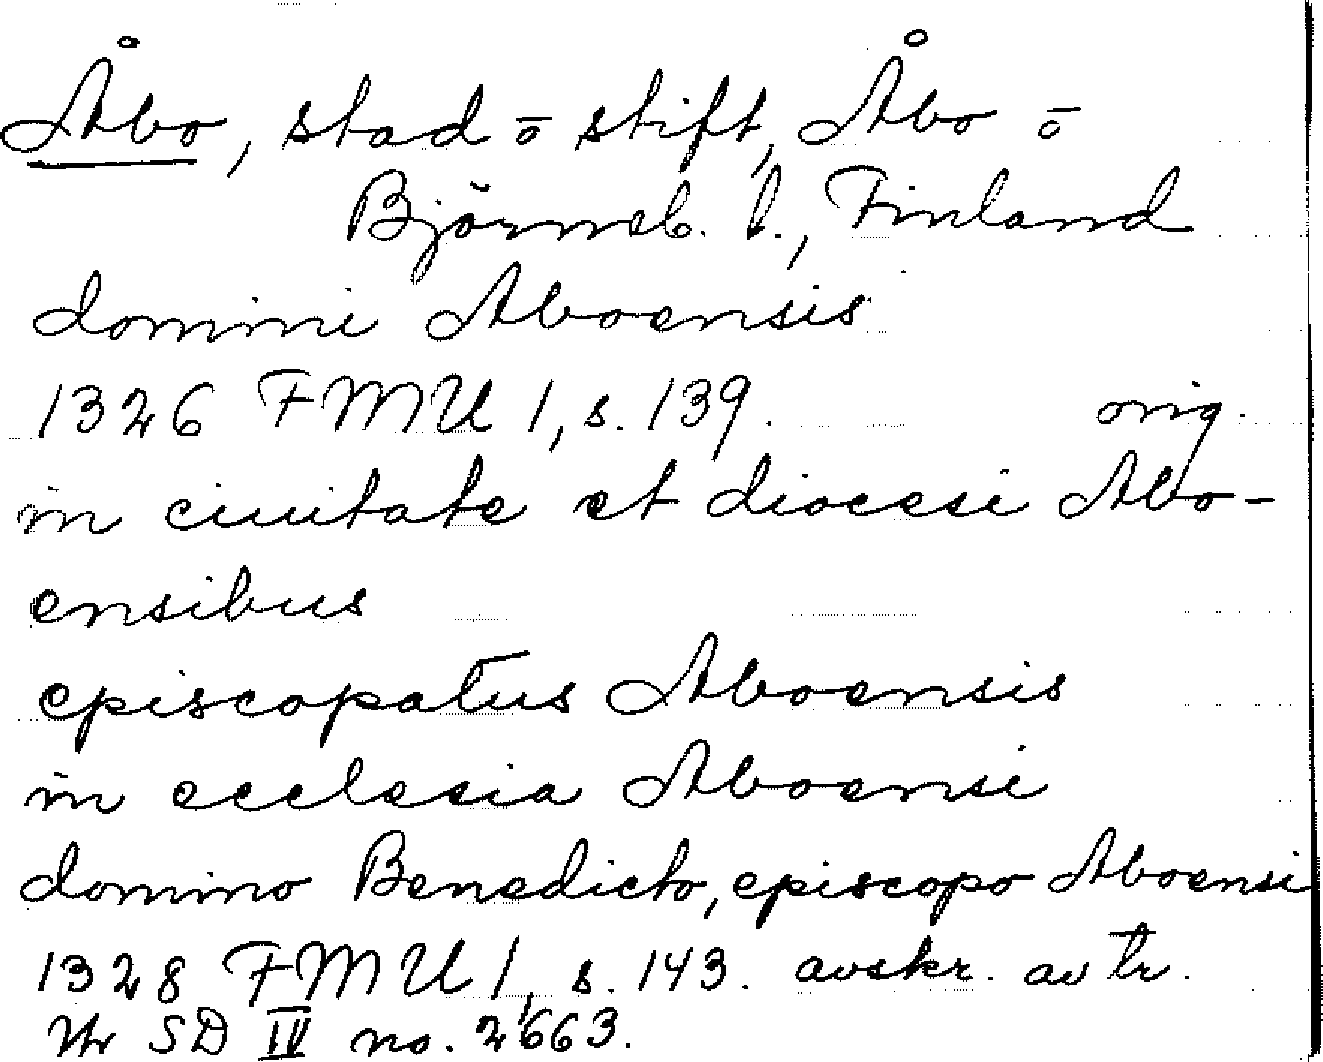 Åbo, stad o stift, Åbo o
Björneb. l., Finland
domini Aboensis
1326 FMU 1, s. 139. orig.
in ciuitate et diocesi Abo-
ensibus
episcopatus Aboensis
in ecclesia Aboensi
domino Benedicto, episcopo Aboensi
1328 FMU 1, s. 143. avskr. av tr.
Ur SD IV no. 2663.